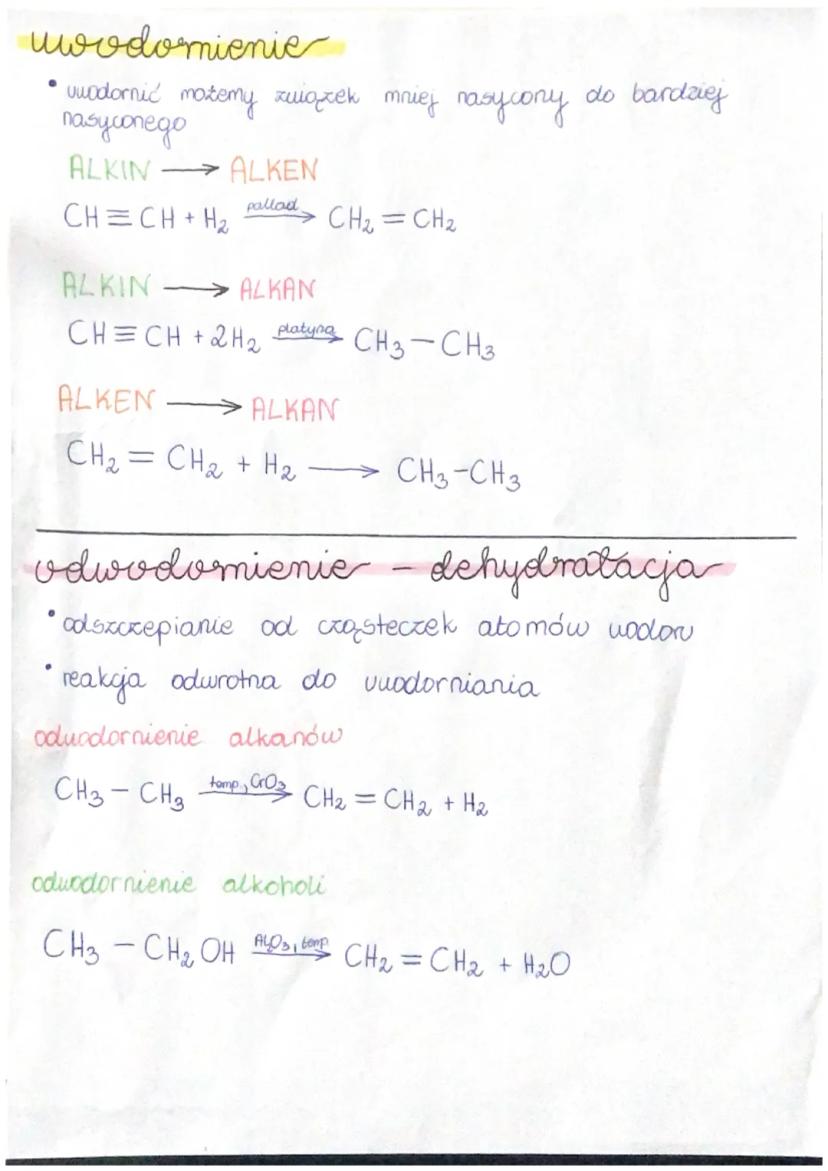 uwodornienie
• uwodornić możemy związek mniej nasycony do bardziej
nasyconego
ALKIN → ALKEN
CH≡CH + H₂ —pallad→ CH₂=CH₂
ALKIN → ALKAN
CH≡CH + 2H₂ —platyna→ CH₃-CH₃
ALKEN → ALKAN
CH₂=CH₂ + H₂ → CH₃-CH₃
odwodornienie - dehydratacja
• odszczepianie od cząsteczek atomów wodoru
• reakcja odwrotna do uwodorniania
odwodornienie alkanów
CH₃-CH₃ —temp., CrO₃→ CH₂=CH₂ + H₂
odwodornienie alkoholi
CH₃-CH₂OH —Al₂O₃, temp→ CH₂=CH₂ + H₂O